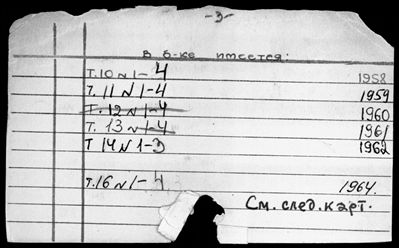 -3-
В б-ке имеется:
Т.10 N 1-4 1958
Т. 11 N 1-4 1959
Т. 12 N 1-4 1960
Т. 13 N 1-4 1961
Т 14 N 1-3 1962
Т.16 N 1-4 1964.
См. след. карт.